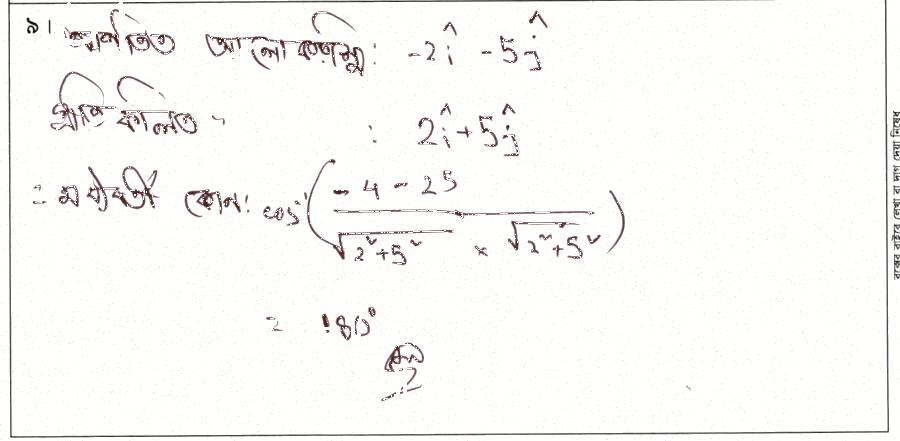 ৯। আপতিত আলোকরশ্মি: -2î - 5ĵ
প্রতিফলিত " : 2î + 5ĵ
∴ মধ্যবর্তী কোন: cos⁻¹((-4 - 25) / (√(2²+5²) × √(2²+5²)))
= 180°
বক্সের বাইরে লেখা বা দাগ দেয়া নিষেধ